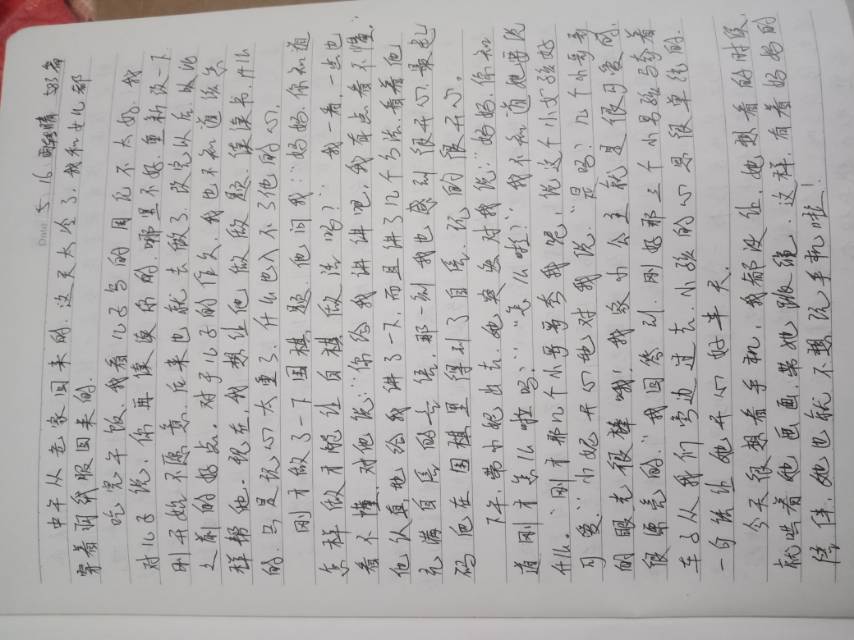 Date 5.16 晴
中午从老家回来的,这天太冷了,我和女儿都
穿着羽绒服回来的。
吃完午饭,我看儿子写的周记不太好,我
对儿子说,你再修改的,哪里不好,重新改一下
刚开始不愿意,后来也就去做了,改完以后,比他
之前的好点。对于儿子的作文,我也不知道该怎
样帮他。现在,我想让他做做题,读读书,什么
的,可是玩心太重了,什么也入不了他的心。
刚才做了一下围棋题,他问我:“妈妈,你知道
怎样做才能让白棋做活吗?”我一看,一点也
看不懂,对他说:“你给我讲讲吧,我有点看不懂。”
他认真地给我讲了一下,而且讲了几个方法,看着他
充满自信的表情,那一刻我也感到很开心,最起
码他在围棋里得到了自信,玩的很开心。
下午,带小妮出去,她突然对我说:“妈妈,你知
道刚才怎么啦吗?”“怎么啦?”我不知道她要说
什么。“刚才那几个小哥哥夸我呢,说这个小女孩好
可爱。”小妮开心地对我说。“是吗?几个小哥哥
的眼光很棒哦!我家小公主就是很可爱的,
很漂亮的。”我回答到,刚好那三个小男孩骑着
车子从我们旁边过去,小孩的心思很单纯的,
一句话让她开心好半天。
今天很想看手机,我都没让,她想看的时候,
就哄着她画画,带她跳绳,这样,有着妈妈的
陪伴,她也就不想玩手机啦!